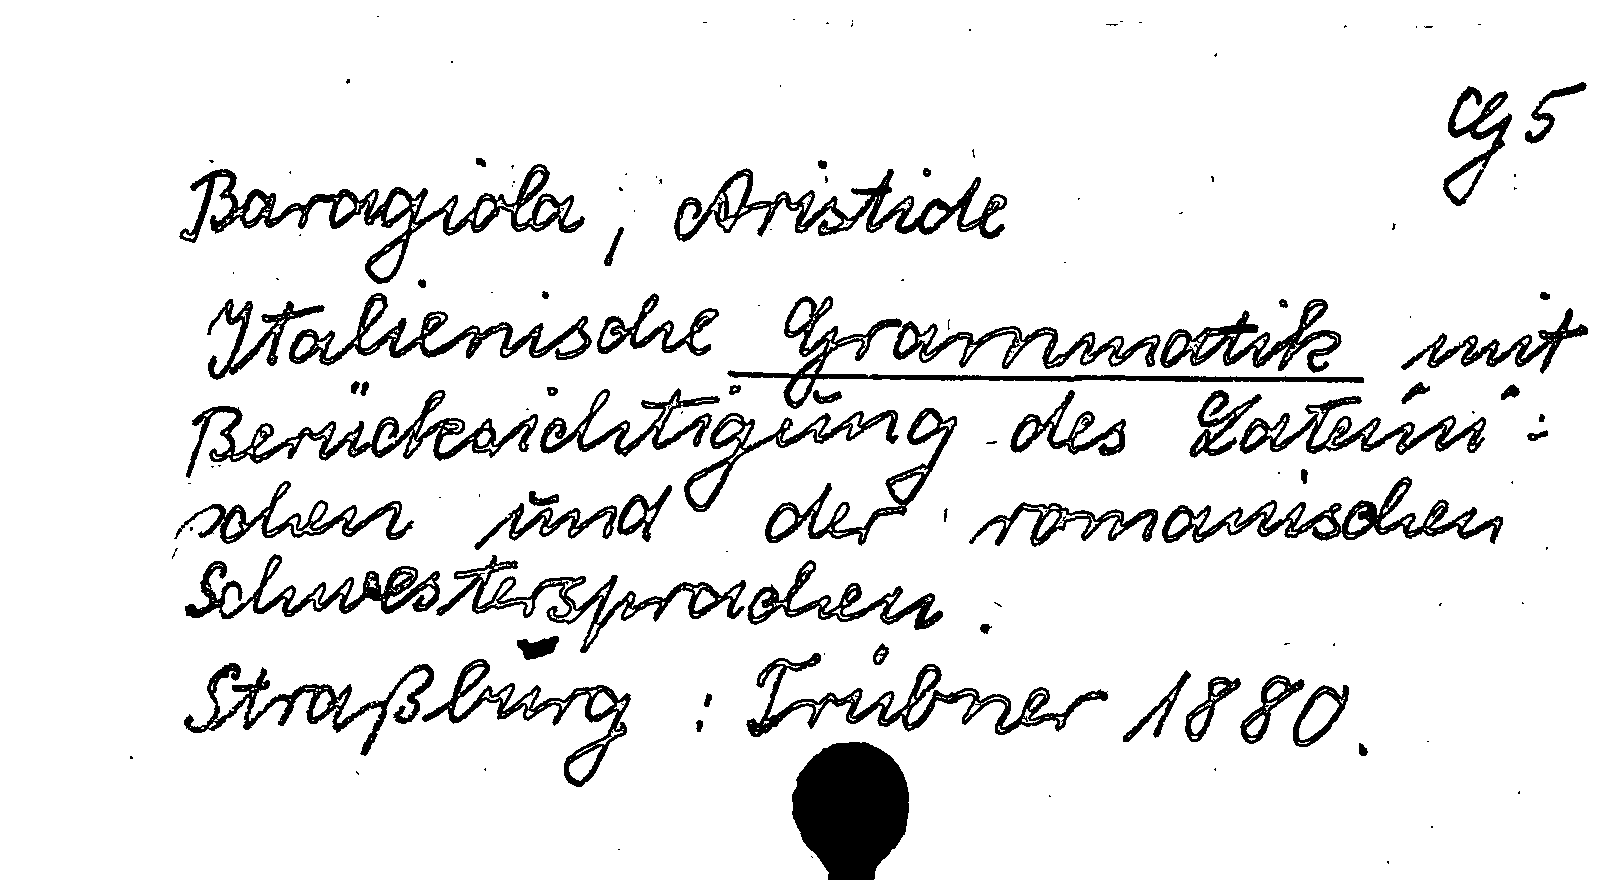 Cg 5
Baragiola, Aristide
Italienische Grammatik mit
Berücksichtigung des Lateini-
schen und der romanischen
Schwestersprachen.
Straßburg: Trübner 1880.